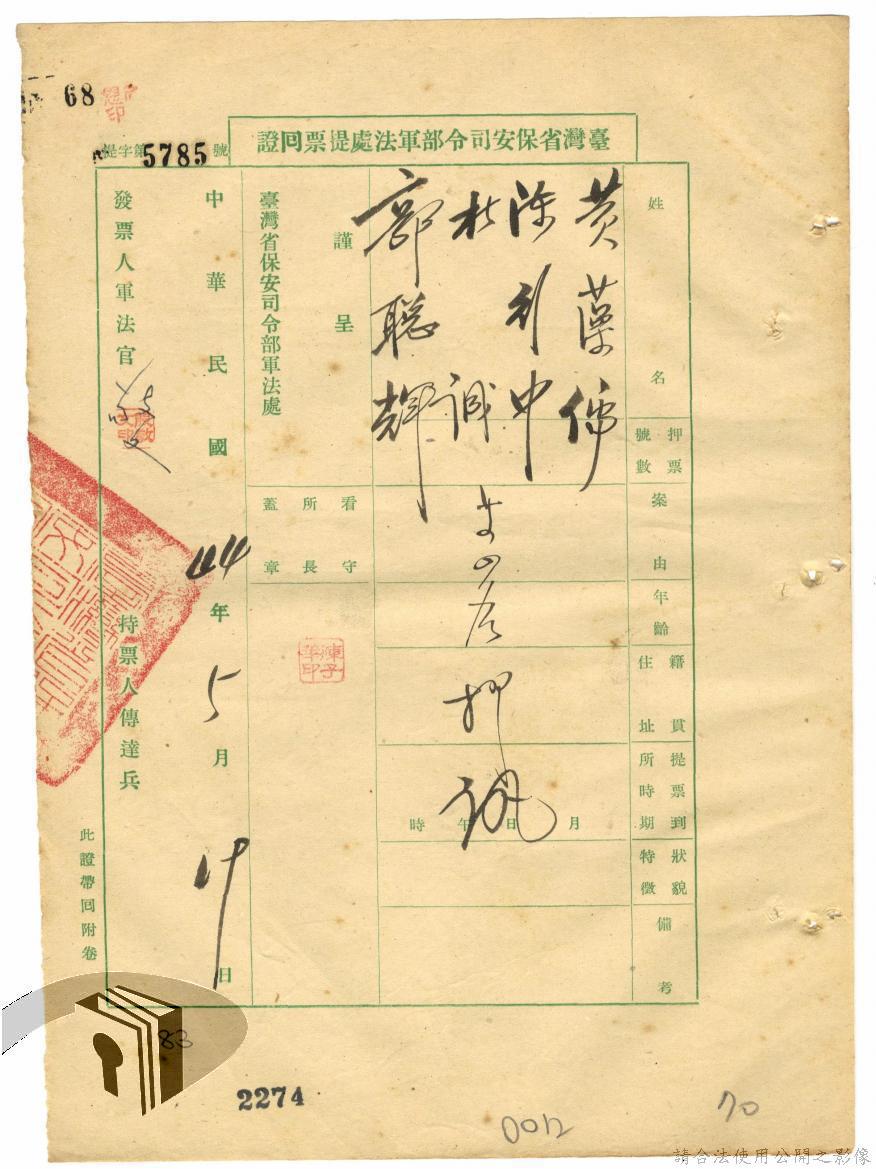 68
臺灣省保安司令部軍法處提票回證
提字第5785號
姓名
押票號數
案由
年齡
籍貫住址
提票到所時期
狀貌特徵
備考
黃藻儒
陳列中
杜誠
郭聰輝
押訊
月日午時
謹呈
臺灣省保安司令部軍法處
看守所長蓋章
中華民國44年5月 日
發票人軍法官
持票人傳達兵
此證帶回附卷
83
2274
0012
70
請合法使用公開之影像